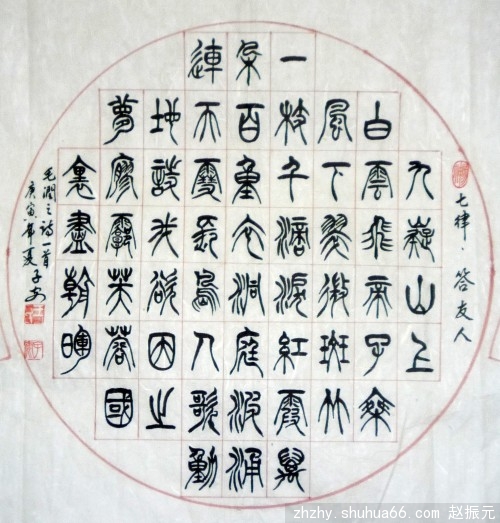 七律·答友人
九嶷山上
白雲飛帝子乘
風下翠微斑竹
一枝千滴淚紅霞萬
朵百重衣洞庭波涌
連天雪長島人歌動
地詩我欲因之
夢寥廓芙蓉國
裏盡朝暉
毛潤之詩一首
庚寅夏子安
zhzhy.shuhua66.com 赵振元